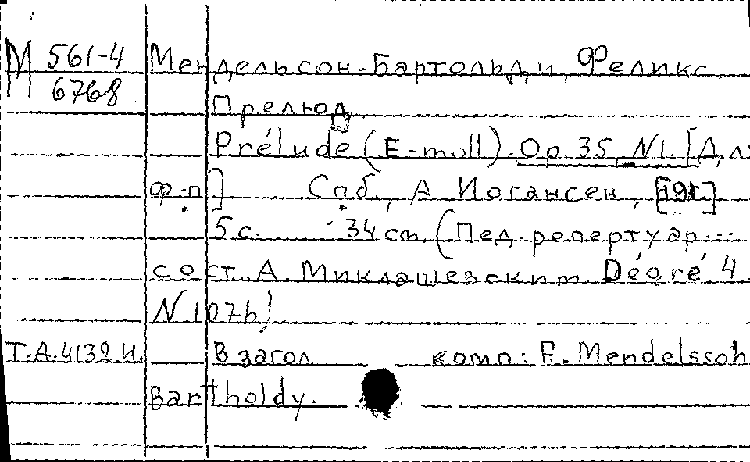 М 561-4
6768
Мендельсон-Бартольди, Феликс
Прелюд
Prélude (E-moll). Op. 35 N1. [Дл
ф-п] Спб, А. Иогансен,
5 с. 34 cm, (Пед. репертуар...
сост. А. Миклашевским Degré 4
N 107b)
Т.А.4132 И. В загол. комп: F. Mendelssoh
Bartholdy.